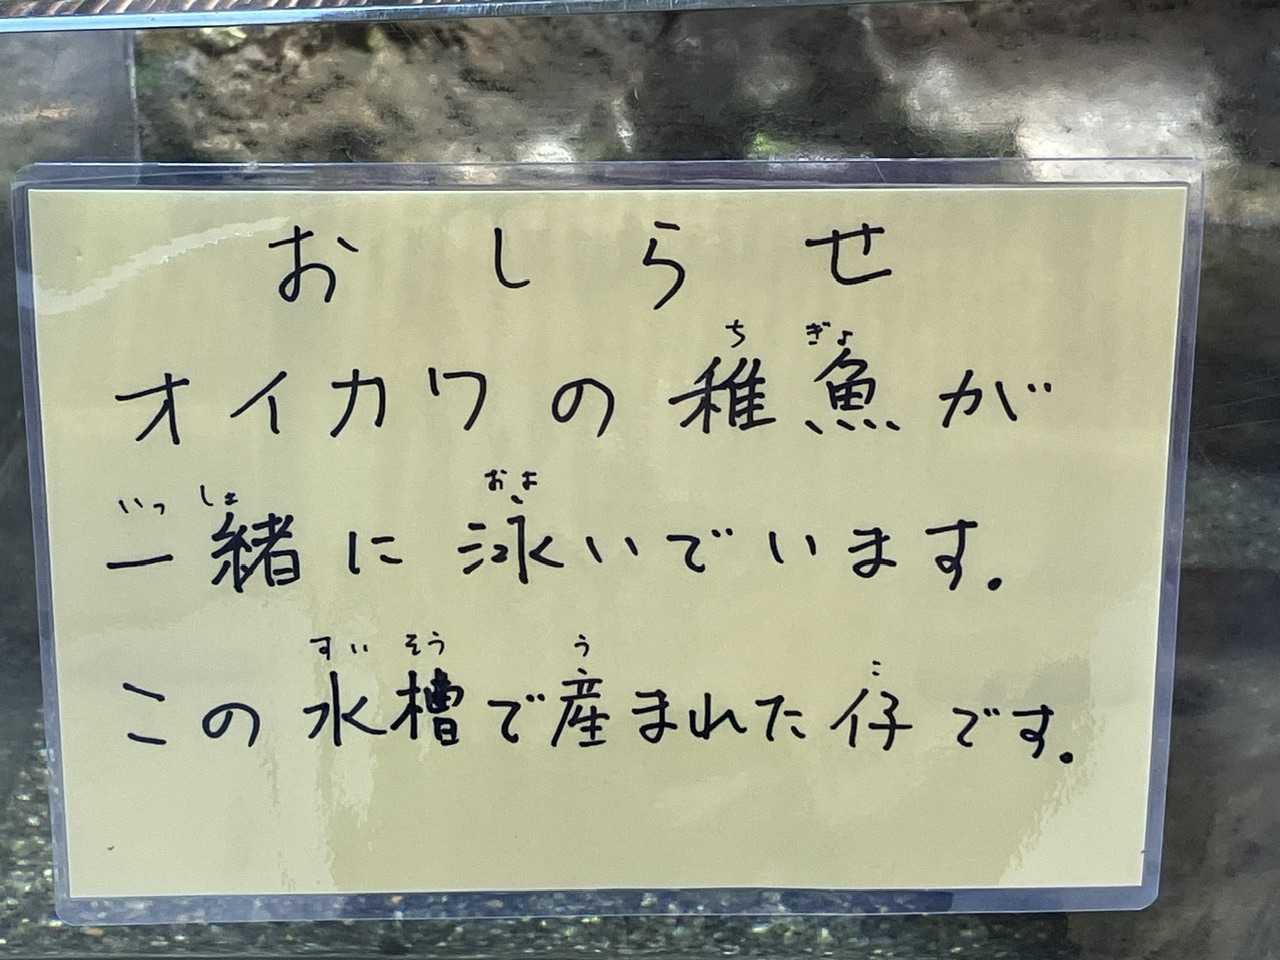 おしらせ
ちぎょ
オイカワの稚魚が
いっしょ およ
一緒に泳いでいます.
すいそう う こ
この水槽で産まれた仔です.